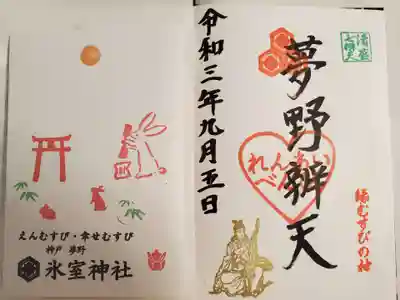 縁むすびの神
夢野辨天
れんあい
令和三年九月五日
えんむすび・幸せむすび
神戸 夢野
氷室神社